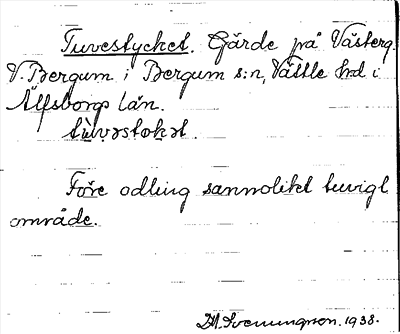 Tuvestycket. Gärde på Västerg.
V. Bergum i Bergum s:n, Vättle hd i
Älfsborgs län.
tùvəstəkət.
Före odling sannolikt tuvigt
område.
D.A. Svenungson. 1938.